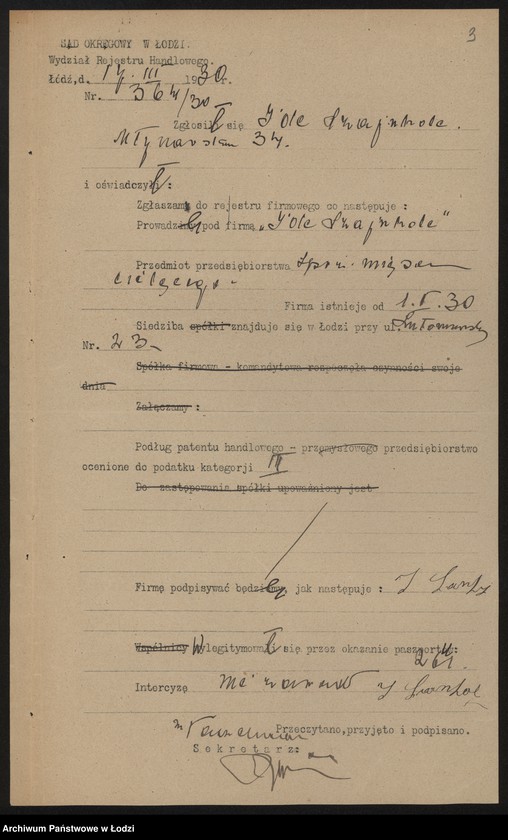 3
SĄD OKRĘGOWY W ŁODZI.
Wydział Rejestru Handlowego.
Łódź, d. 17. III 1930 r.
Nr. 364/30
Zgłosił się Jde Szajnholc.
Młynarska 34.
i oświadczył:
Zgłaszam do rejestru firmowego co następuje :
Prowadzę pod firmą „Jde Szajnholc"
Przedmiot przedsiębiorstwa Sprz. mięsa
cielęcego.
Firma istnieje od 1. I. 30
Siedziba spółki znajduje się w Łodzi przy ul.
Nr. 23
Spółka firmowa - komandytowa rozpoczęła czynności swoje
dnia
Załączamy :
Podług patentu handlowego - przemysłowego przedsiębiorstwo
ocenione do podatku kategorji III
Do zastępowania spółki upoważniony jest
Firmę podpisywać będę, jak następuje : J
Wspólnicy Wylegitymował się przez okazanie paszportu:
Intercyzę nie zawarł J
Przeczytano, przyjęto i podpisano.
Sekretarz:
Archiwum Państwowe w Łodzi